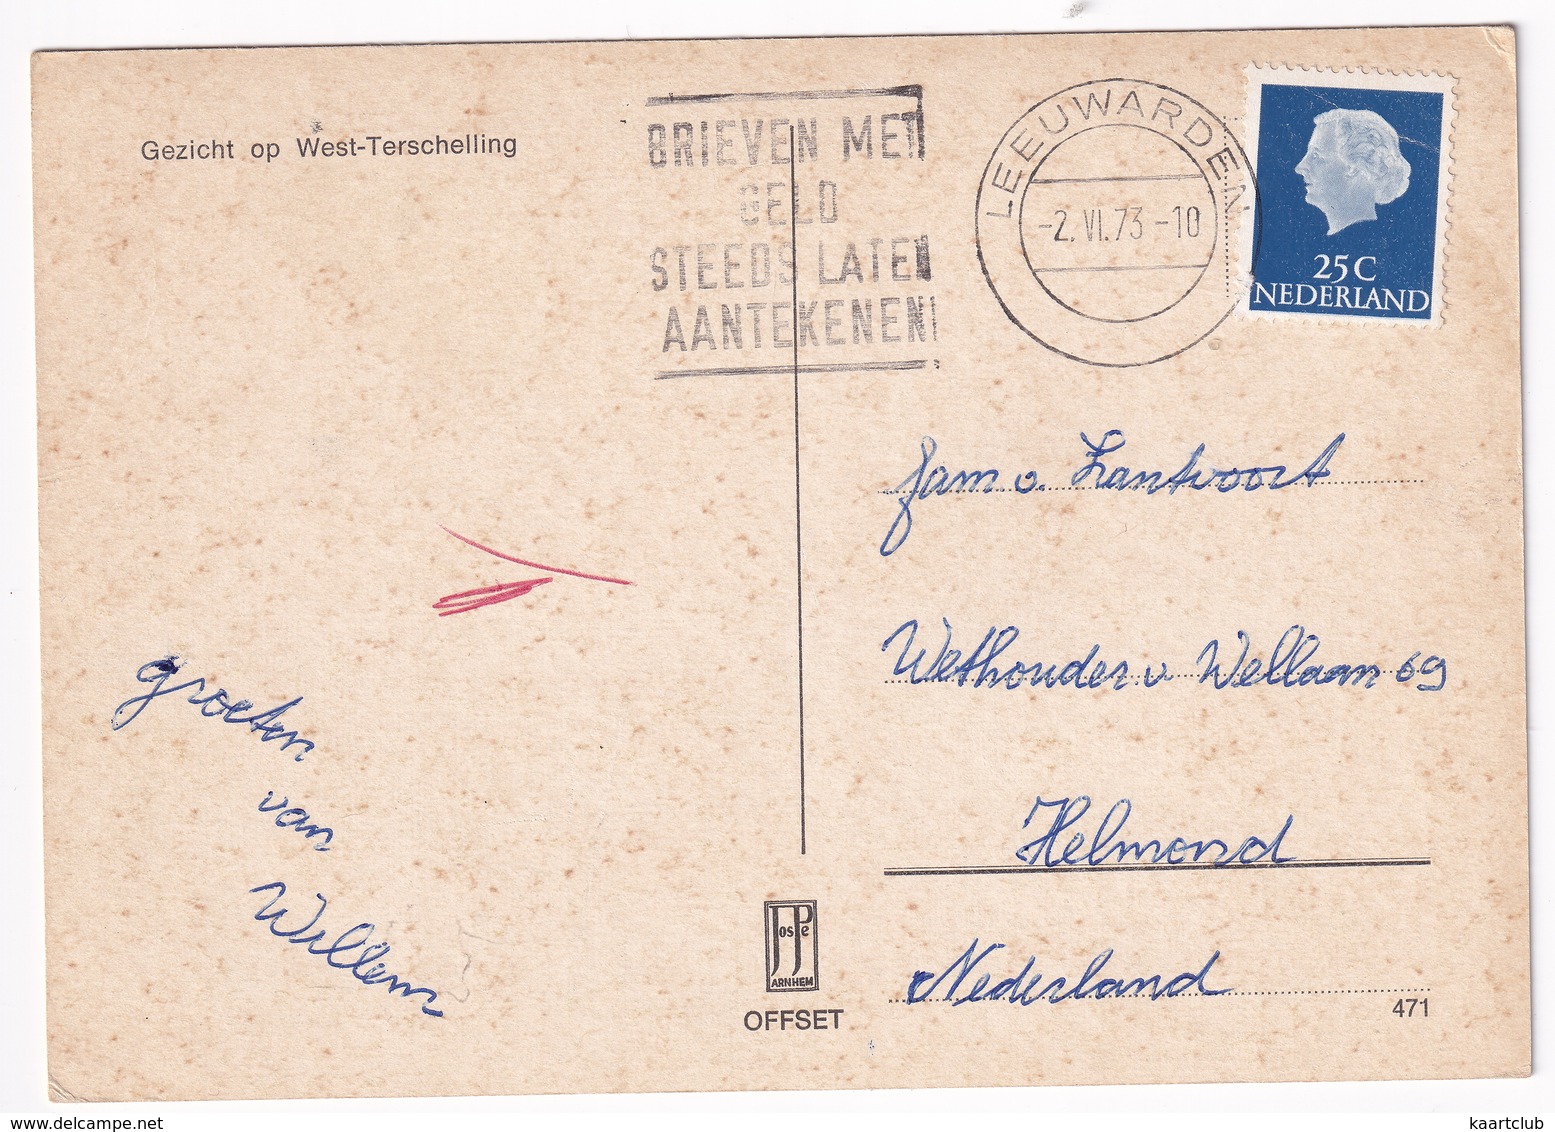 Gezicht op West-Terschelling
BRIEVEN MET
GELD
STEEDS LATEN
AANTEKENEN!
LEEUWARDEN
-2.VI.73-10
25C
NEDERLAND
fam. v. Zantvoort
Wethouder v. Wellaan 69
Helmond
Nederland
groeten
van
Willem
JosPe
ARNHEM
OFFSET
471
www.delcampe.net
kaartclub